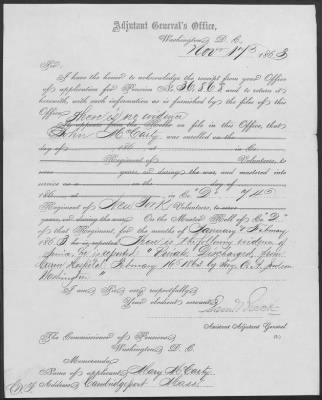 Adjutant General's Office,
Washington, D. C.,
Nov 17th, 1863
Sir:
I have the honor to acknowledge the receipt from your Office
of application for Pension No. 36,868, and to return it
herewith, with such information as is furnished by the files of this
Office.
There is no evidence
on file in this Office, that
John McCarty, was enrolled on the
day of 186 , at in Co.
Regiment of Volunteers, to
serve years, or during the war, and mustered into
service as a on the day of
186 , at , in Co. "D" 74th
Regiment of New York Volunteers, to serve
years, or during the war. On the Muster Roll of Co. "D"
of that Regiment, for the months of January & February
1863, he is reported There is the following evidence of
service, he is reported "Private. Discharged from
Hospital" February 16 1863 by
Washington.
I am, Sir, very respectfully,
Your obedient servant,
Assistant Adjutant General
The Commissioner of Pensions
Washington, D. C.
Memoranda:
Name of applicant, Mary McCarty
Address, Cambridgeport Mass